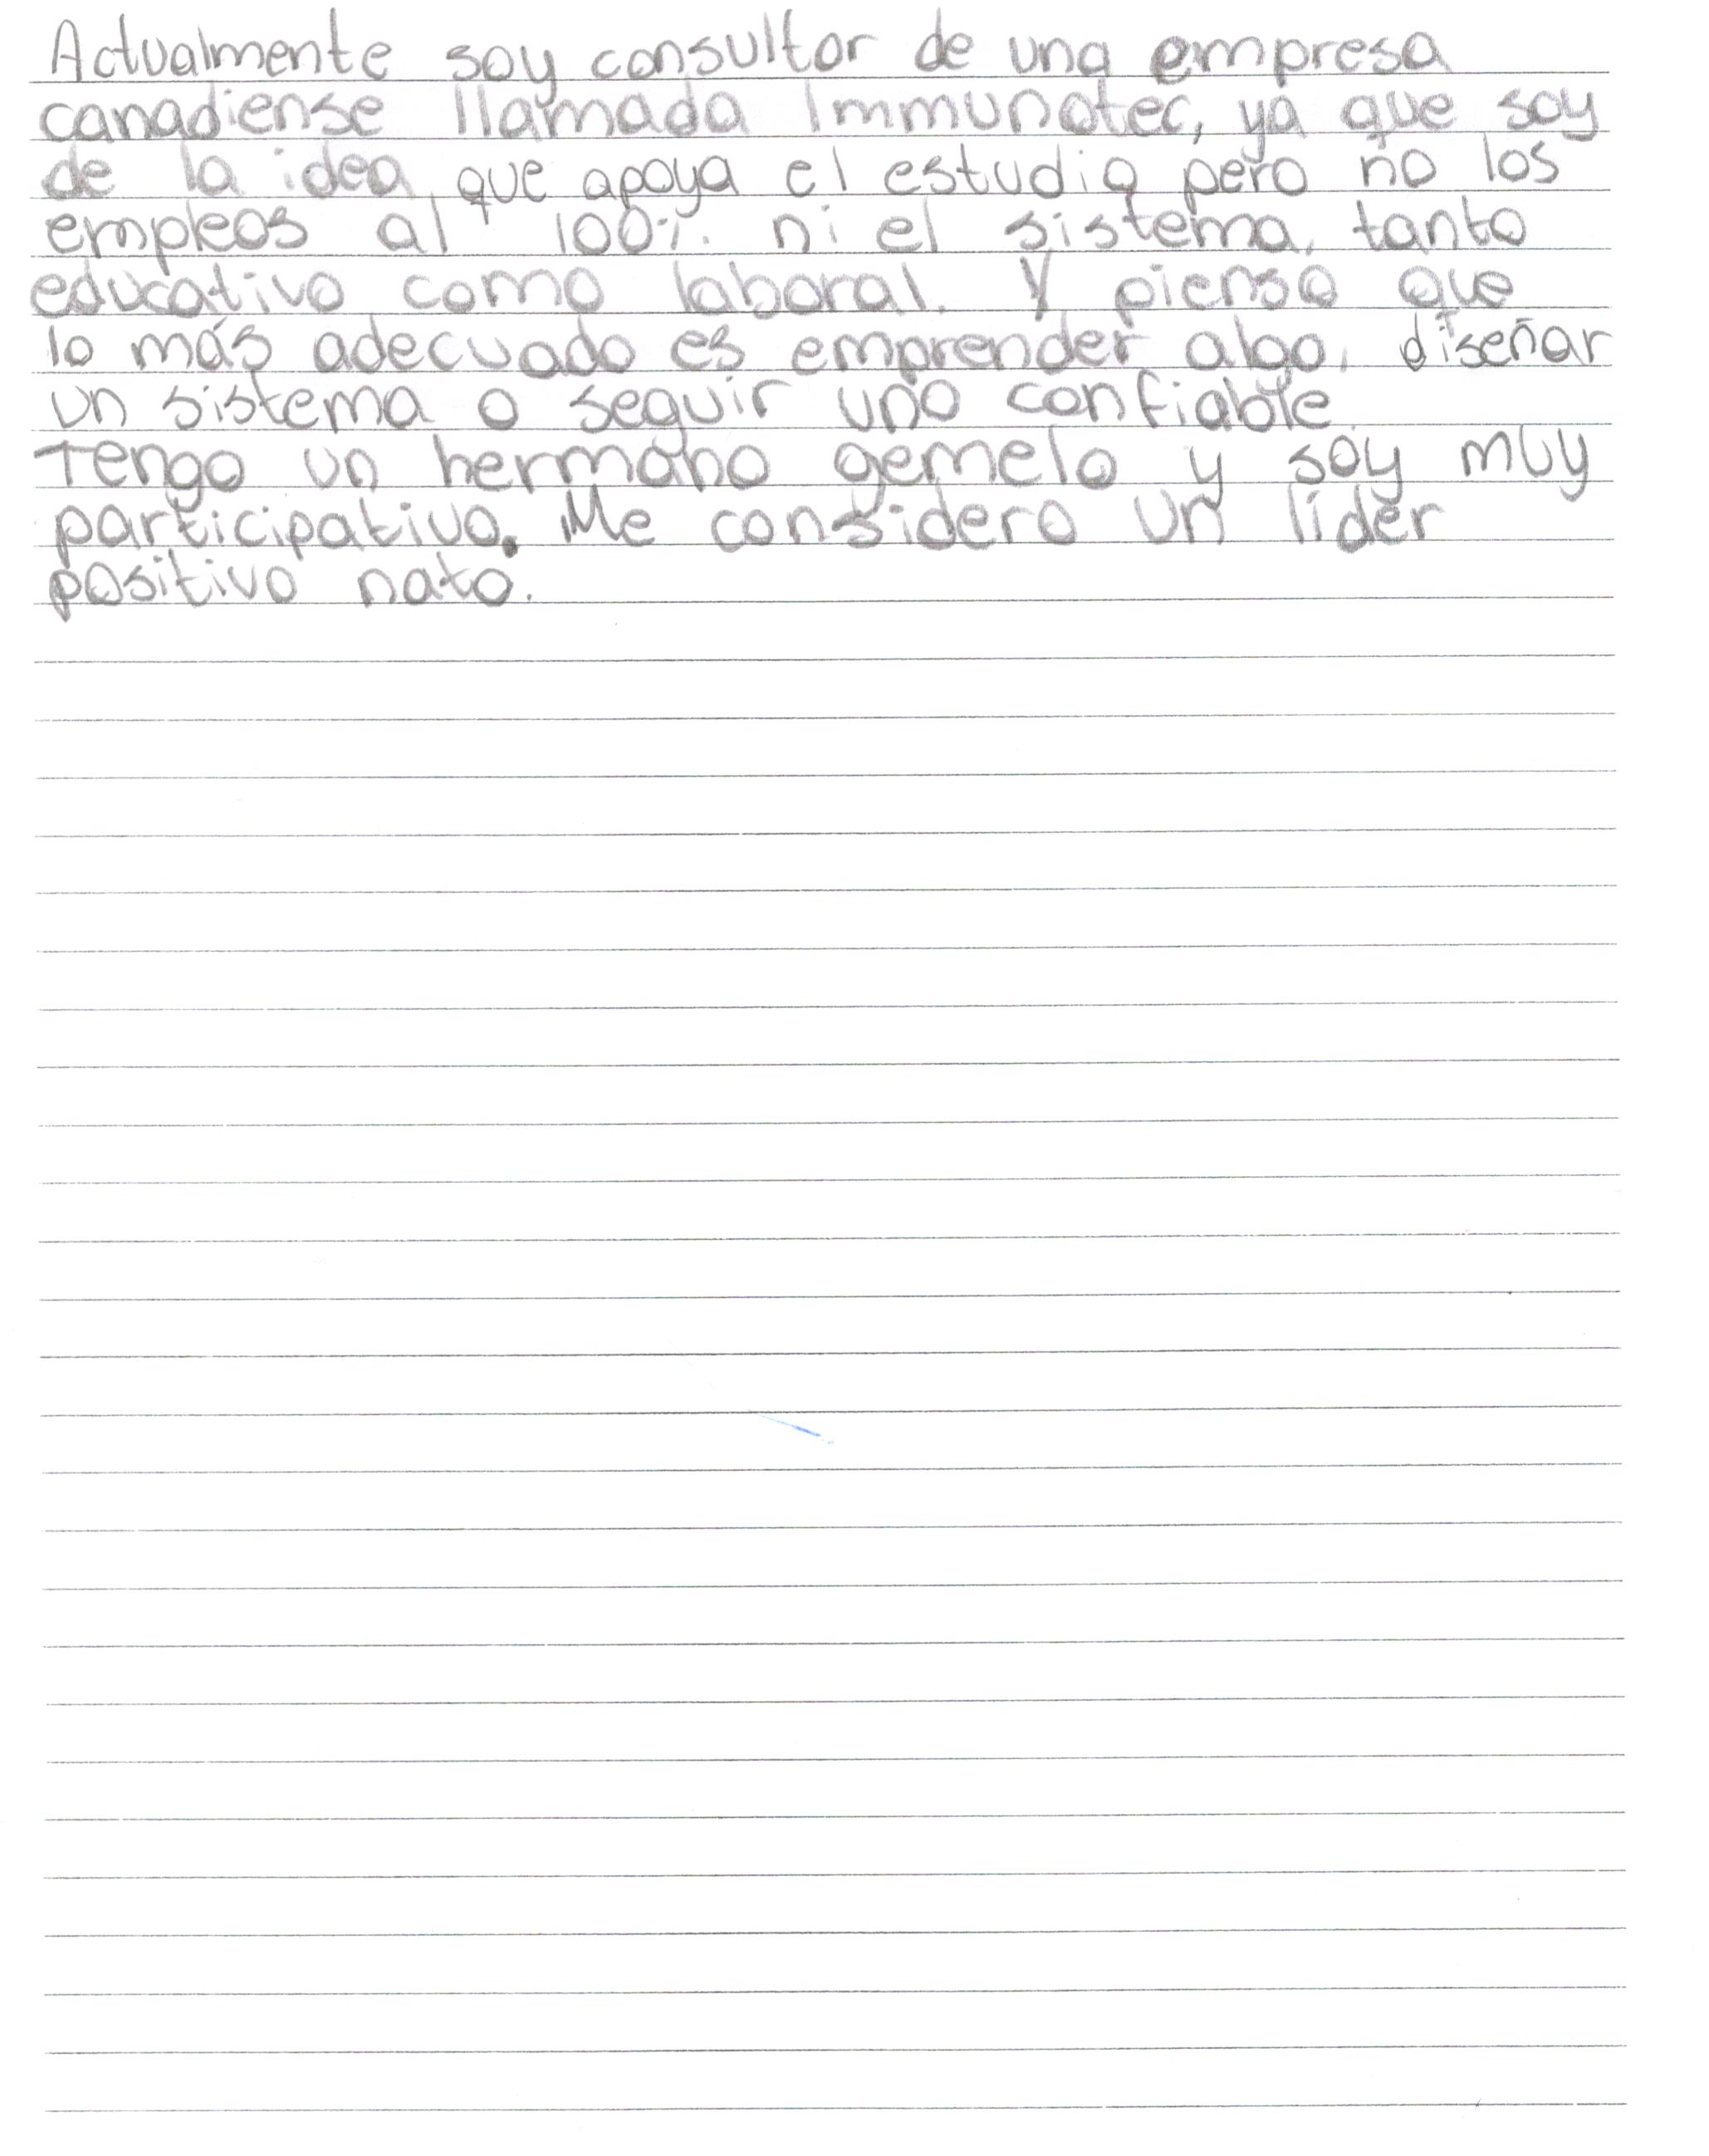 Actualmente soy consultor de una empresa
canadiense llamada Immunotec, ya que soy
de la idea que apoya el estudio pero no los
empleos al 100% ni el sistema, tanto
educativo como laboral. Y pienso que
lo más adecuado es emprender algo, diseñar
un sistema o seguir uno confiable.
Tengo un hermano gemelo y soy muy
participativo. Me considero un líder
positivo nato.